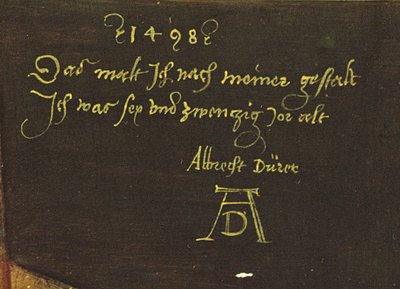 1498
Das malt Ich nach meiner gestalt
Ich was sex vnd zwenzig Jor alt
Albrecht Dürer
AD